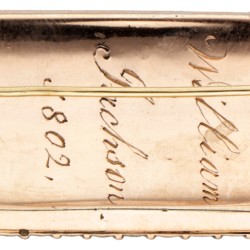 William
Jackson
1802.